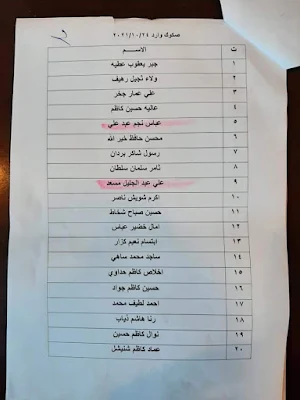 صكوك وارد ٢٠٢١/١٠/٢٤
ت الاسم
١ جبر يعقوب عطيه
٢ ولاء نجيل رهيف
٣ علي عمار جخر
٤ عاليه حسين كاظم
٥ عباس نجم عبد علي
٦ محسن حافظ خير الله
٧ رسول شاكر بردان
٨ ثامر سلمان سلطان
٩ علي عبد الجليل مسعد
١٠ اكرم شويش ناصر
١١ حسين صباح شخاط
١٢ امال خضير عباس
١٣ ابتسام نعيم كزار
١٤ ساجد محمد ساهي
١٥ اخلاص كاظم حداوي
١٦ حسين كاظم جواد
١٧ احمد لطيف محمد
١٨ رنا هاشم ذياب
١٩ نوال كاظم حسين
٢٠ عماد كاظم شنيشل